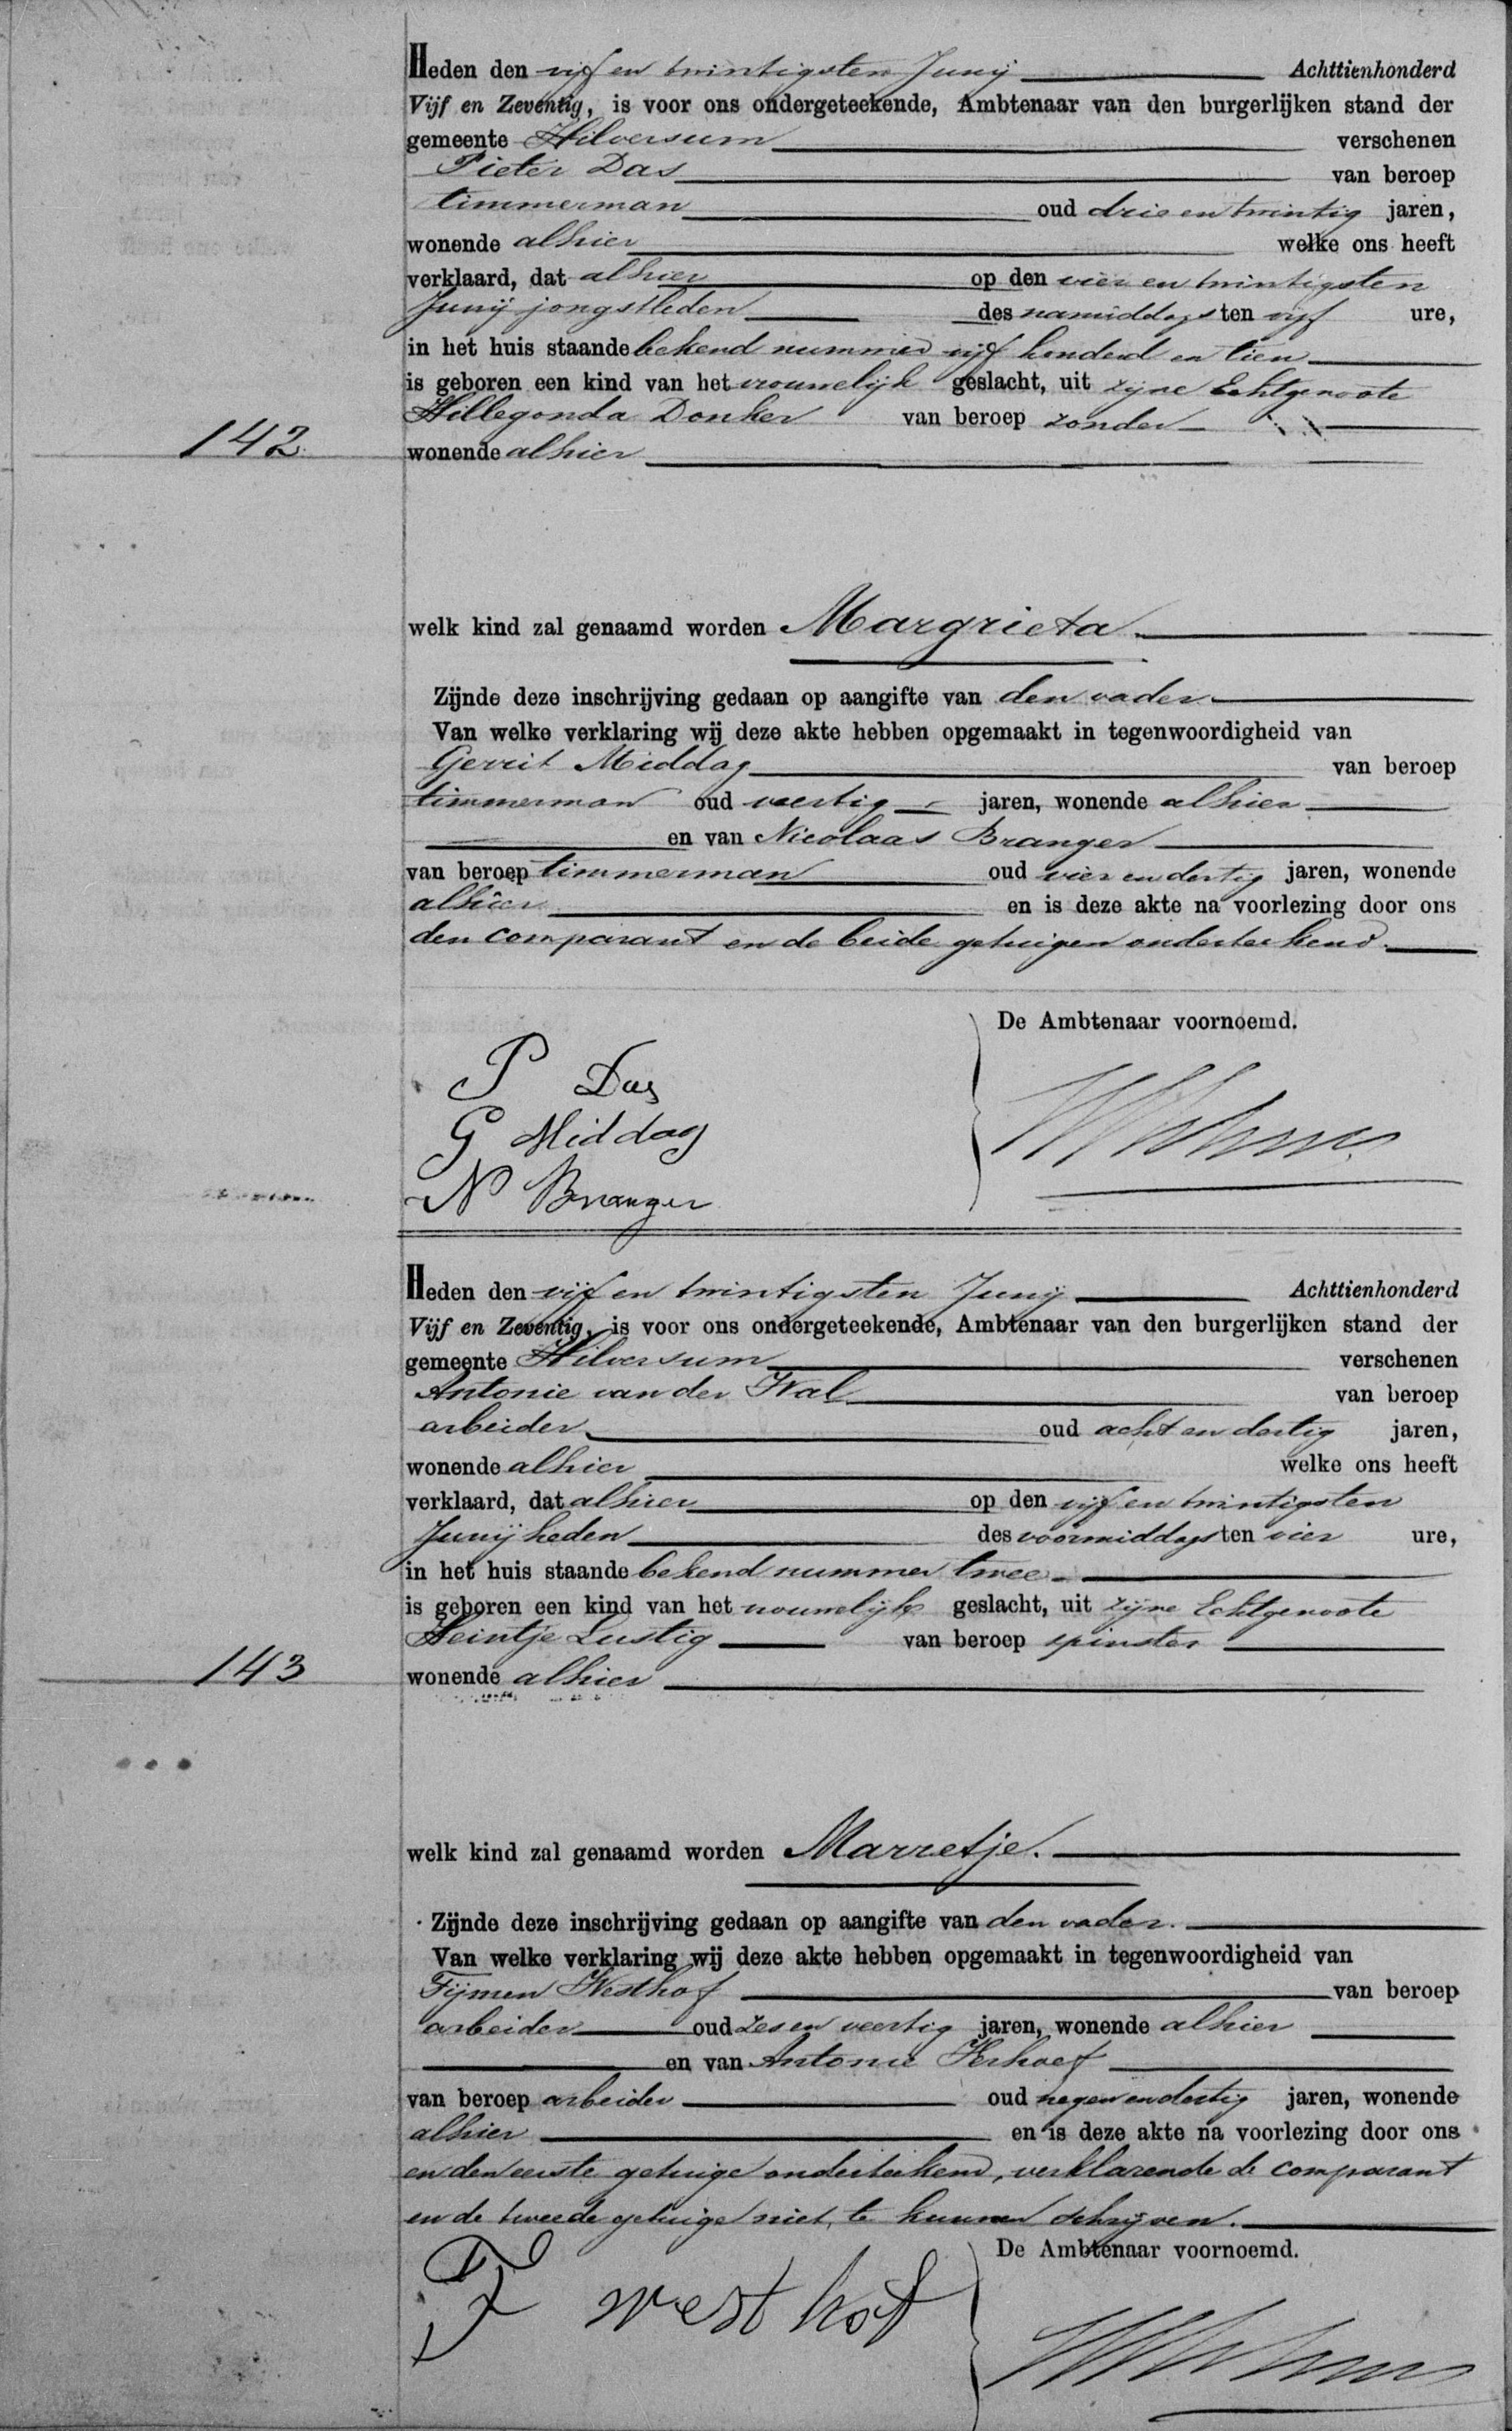 Heden den vijf en twintigsten Junij Achttienhonderd
Vijf en Zeventig, is voor ons ondergeteekende, Ambtenaar van den burgerlijken stand der
gemeente Hilversum verschenen
Pieter Das van beroep
timmerman oud drie en twintig jaren,
wonende alhier welke ons heeft
verklaard, dat alhier op den vier en twintigsten
Junij jongstleden des namiddags ten vijf ure,
in het huis staande bekend nummer vijf honderd en tien
is geboren een kind van het vrouwelijk geslacht, uit zijne Echtgenoote
Hillegonda Donker van beroep zonder
142
wonende alhier
welk kind zal genaamd worden Margrieta
Zijnde deze inschrijving gedaan op aangifte van den vader
Van welke verklaring wij deze akte hebben opgemaakt in tegenwoordigheid van
Gerrit Middag van beroep
timmerman oud veertig jaren, wonende alhier
en van Nicolaas Branger
van beroep timmerman oud vier en dertig jaren, wonende
alhier en is deze akte na voorlezing door ons
den comparant en de beide getuigen onderteekend.
De Ambtenaar voornoemd.
P Das
G Middag
N Branger
Heden den vijf en twintigsten Junij Achttienhonderd
Vijf en Zeventig, is voor ons ondergeteekende, Ambtenaar van den burgerlijken stand der
gemeente Hilversum verschenen
Antonie van der Wal van beroep
arbeider oud acht en dertig jaren,
wonende alhier welke ons heeft
verklaard, dat alhier op den vijf en twintigsten
Junij heden des voormiddags ten vier ure,
in het huis staande bekend nummer twee
is geboren een kind van het vrouwelijk geslacht, uit zijne Echtgenoote
Heintje Lustig van beroep spinster
143
wonende alhier
welk kind zal genaamd worden Marretje.
Zijnde deze inschrijving gedaan op aangifte van den vader.
Van welke verklaring wij deze akte hebben opgemaakt in tegenwoordigheid van
Tijmen Westhof van beroep
arbeider oud zes en veertig jaren, wonende alhier
en van Antonie Verhoef
van beroep arbeider oud negen en dertig jaren, wonende
alhier en is deze akte na voorlezing door ons
en den eerste getuige onderteekend, verklarende de comparant
en de tweede getuige niet te kunnen schrijven.
De Ambtenaar voornoemd.
T westhof